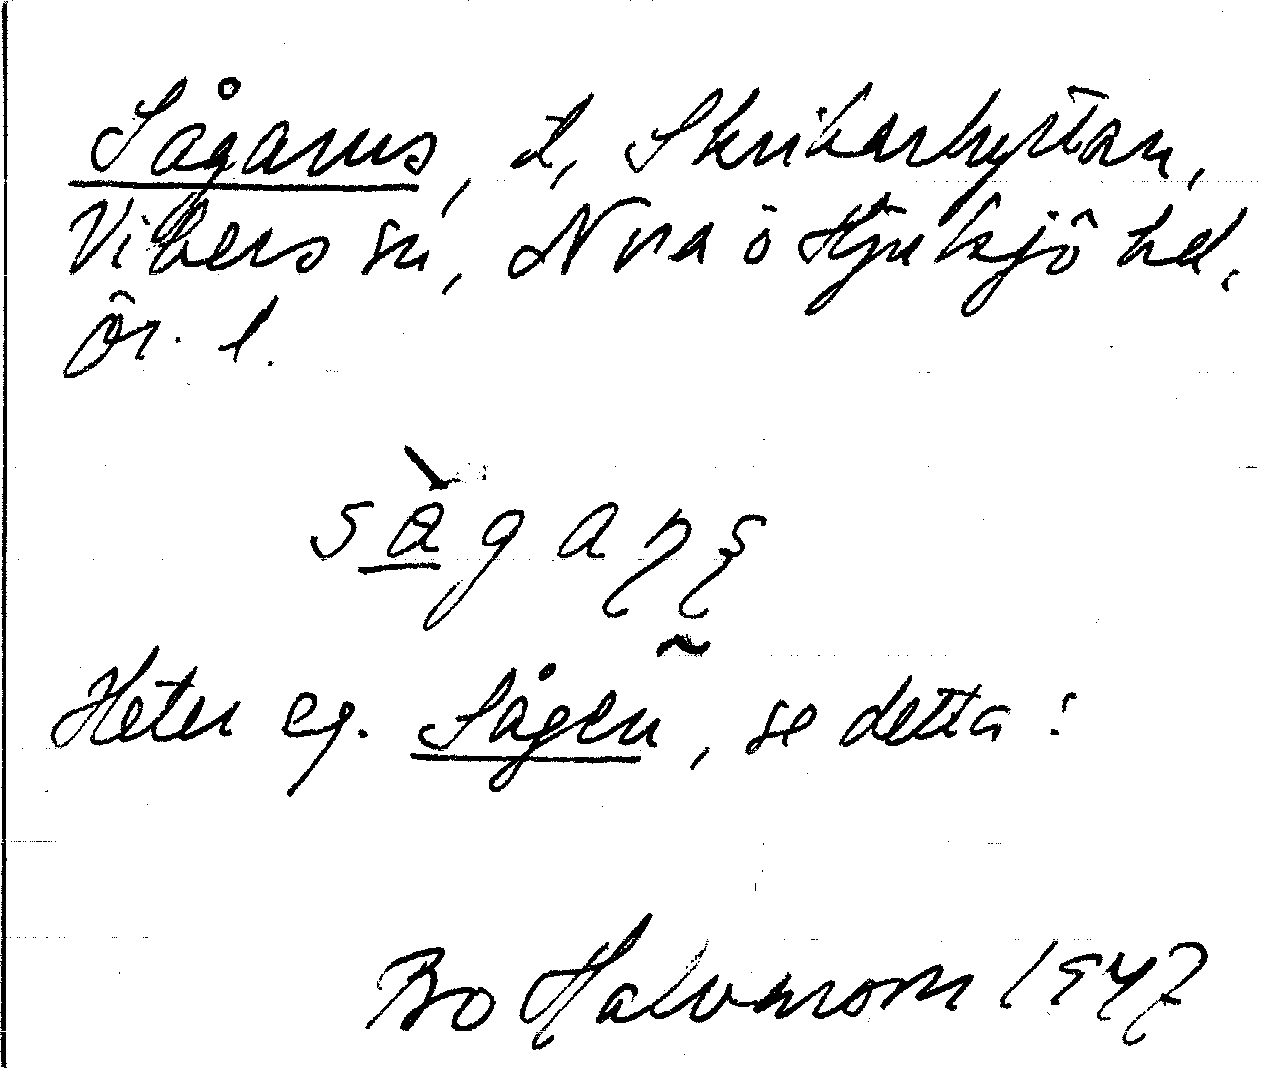 Sågarns, t, Skrikarhyttan,
Vikers sn, Nora ö Hjulsjö hd,
Ör. l.
sågaṇṣ
Heter eg. Sågen, se detta!
Bo Halvarsson 1947